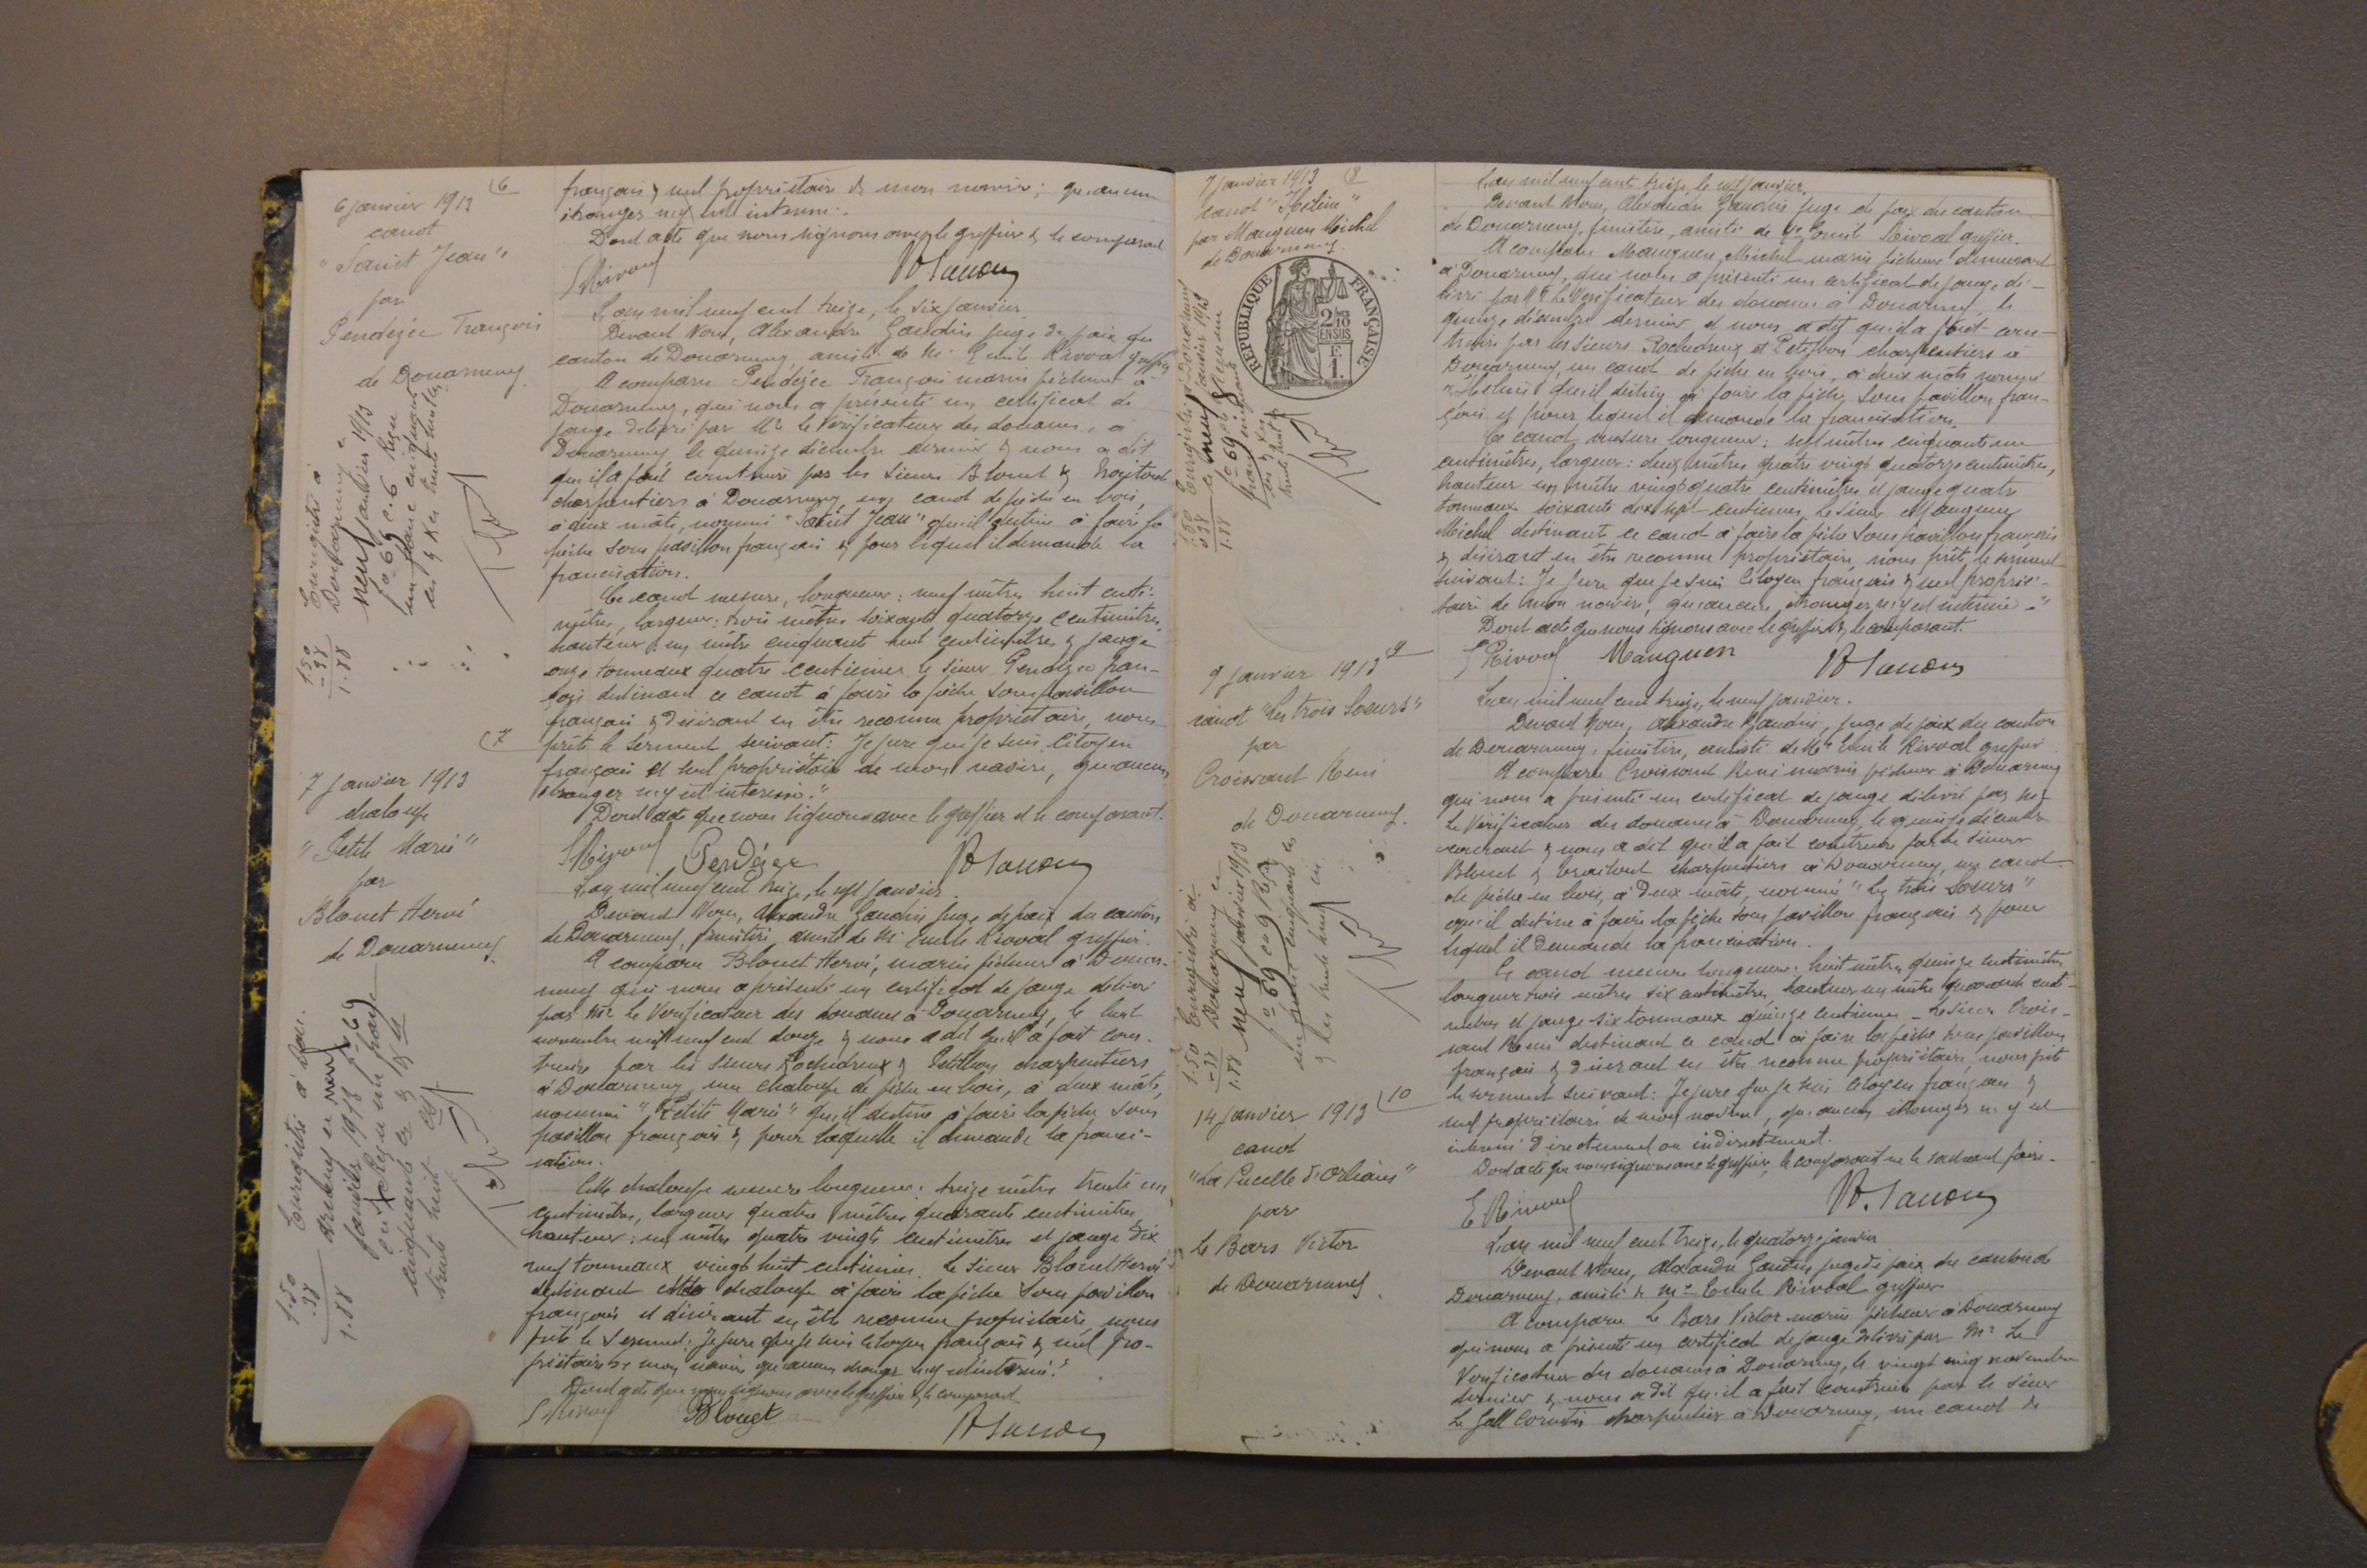 6
6 janvier 1913
canot
"Saint Jean"
par
Pendézec François
de Douarnenez
Enregistré à
Douarnenez
neuf janvier 1913
f° 69 c. 6 Reçu
un franc cinquante
1.50
-38
1.88
7
7 janvier 1913
chaloupe
"Petite Marie"
par
Blouet Hervé
de Douarnenez
Enregistré à Dou-
arnenez en neuf
janvier 1913 f° 69
Reçu un franc
cinquante
trente huit
1.50
.38
1.88
français & seul propriétaire de mon navire; qu'aucun
étranger n'y est intéressé.
Dont acte que nous signons avec le greffier & le comparant
ERivoal
L'an mil neuf cent treize, le six janvier
Devant Nous, Alexandre Gaudin juge de paix du
canton de Douarnenez assisté de Mr Emile Rivoal greffier
A comparu Pendézec François marin pêcheur à
Douarnenez, qui nous a présenté un certificat de
jauge délivré par Mr le Vérificateur des douanes, à
Douarnenez le quinze décembre dernier & nous a dit
qu'il a fait construire par les sieurs Blouet &
charpentiers à Douarnenez, un canot de pêche en bois,
à deux mâts, nommé "Saint Jean" qu'il destine à faire la
pêche sous pavillon français & pour lequel il demande la
francisation.
Ce canot mesure, longueur: neuf mètres huit centi-
mètres, largeur: trois mètres soixante quatorze centimètres,
hauteur: un mètre cinquante huit centimètres & jauge
onze tonneaux quatre centièmes le sieur Pendézec Fran-
çois destinant ce canot à faire la pêche sous pavillon
français & désirant en être reconnu propriétaire, nous
prête le serment suivant: Je jure que je suis citoyen
français et seul propriétaire de mon navire, qu'aucun
étranger n'y est intéressé."
Dont acte que nous signons avec le greffier et le comparant.
ERivoal Pendézec
L'an mil neuf cent treize, le sept janvier.
Devant Nous, Alexandre Gaudin juge de paix du canton
de Douarnenez, finistère, assisté de Mr Emile Rivoal greffier.
A comparu Blouet Hervé, marin pêcheur à Douar-
nenez qui nous a présenté un certificat de jauge délivré
par Mr le Vérificateur des douanes à Douarnenez, le huit
novembre mil neuf cent douze & nous a dit qu'il a fait cons-
truire par les sieurs Rochedreux & Petitbon charpentiers
à Douarnenez, une chaloupe de pêche en bois, à deux mâts,
nommée "Petite Marie" qu'il destine à faire la pêche sous
pavillon français & pour laquelle il demande la franci-
sation.
Cette chaloupe mesure longueur: treize mètres trente un
centimètres, largeur quatre mètres quarante centimètres
hauteur: un mètre quatre vingts centimètres et jauge dix
neuf tonneaux vingt huit centièmes. Le sieur Blouet Hervé
destinant cette chaloupe à faire la pêche sous pavillon
français et désirant en être reconnu propriétaire nous
prête le serment: Je jure que je suis citoyen français & seul pro-
priétaire de mon navire qu'aucun étranger n'y est intéressé."
Dont acte que nous signons avec le greffier & le comparant
ERivoal Blouet
7 janvier 1913 8
canot "Hélène"
par Manguen Michel
de Douarnenez.
REPUBLIQUE FRANÇAISE
2/10
EN SUS
F.
1.
Enregistré à Douarnenez
le neuf janvier 1913
f° 69
1.50
0.38
1.88
9
9 janvier 1913
canot "Les trois Soeurs"
par
Croissant René
de Douarnenez.
Enregistré à
Douarnenez en
neuf janvier 1913
f° 69
un franc cinquante
1.50
-38
1.88
10
14 janvier 1913
canot
"La Pucelle d'Orléans"
par
Le Bars Victor
de Douarnenez
L'an mil neuf cent treize, le sept janvier.
Devant Nous, Alexandre Gaudin juge de paix du canton
de Douarnenez, finistère, assisté de Mr Emile Rivoal greffier.
A comparu Manguen Michel marin pêcheur demeurant
à Douarnenez, qui nous a présenté un certificat de jauge dé-
livré par Mr le Vérificateur des douanes à Douarnenez, le
quinze décembre dernier et nous a dit qu'il a fait cons-
truire par les sieurs Rochedreux et Petitbon charpentiers à
Douarnenez, un canot de pêche en bois, à deux mâts nommé
"Hélène" qu'il destine à faire la pêche sous pavillon fran-
çais & pour lequel il demande la francisation.
Ce canot mesure longueur: sept mètres cinquante un
centimètres, largeur: deux mètres quatre vingt quatorze centimètres,
hauteur un mètre vingt quatre centimètres et jauge quatre
tonneaux soixante dix sept centièmes. Le sieur Manguen
Michel destinant ce canot à faire la pêche sous pavillon français
& désirant en être reconnu propriétaire, nous prête le serment
suivant: Je jure que je suis citoyen français & seul proprié-
taire de mon navire, qu'aucun étranger n'y est intéressé."
Dont acte que nous signons avec le greffier & le comparant.
ERivoal Manguen
L'an mil neuf cent treize, le neuf janvier.
Devant Nous, Alexandre Gaudin, juge de paix du canton
de Douarnenez, finistère, assisté de Mr Emile Rivoal greffier
A comparu Croissant René marin pêcheur à Douarnenez
qui nous a présenté un certificat de jauge délivré par Mr
le Vérificateur des douanes à Douarnenez, le quinze décembre
& nous a dit qu'il a fait construire par les sieurs
Blouet & charpentiers à Douarnenez, un canot
de pêche en bois, à deux mâts, nommé "les trois Soeurs"
qu'il destine à faire la pêche sous pavillon français & pour
lequel il demande la francisation.
Ce canot mesure longueur: huit mètres quinze centimètres
largeur trois mètres six centimètres, hauteur un mètre quarante centi-
mètres et jauge six tonneaux quinze centièmes - Le sieur Crois-
sant René destinant ce canot à faire la pêche sous pavillon
français & désirant en être reconnu propriétaire, nous prête
le serment suivant: Je jure que je suis citoyen français &
seul propriétaire de mon navire, qu'aucun étranger n'y est
intéressé directement ou indirectement.
Dont acte que nous signons avec le greffier, le comparant ne le sachant faire.
E Rivoal
L'an mil neuf cent treize, le quatorze janvier
Devant Nous, Alexandre Gaudin juge de paix du canton de
Douarnenez, assisté de Mr Emile Rivoal greffier
A comparu Le Bars Victor marin pêcheur à Douarnenez
qui nous a présenté un certificat de jauge délivré par Mr le
Vérificateur des douanes à Douarnenez, le vingt cinq novembre
dernier & nous a dit qu'il a fait construire par le sieur
Le Gall Corentin charpentier à Douarnenez, un canot de